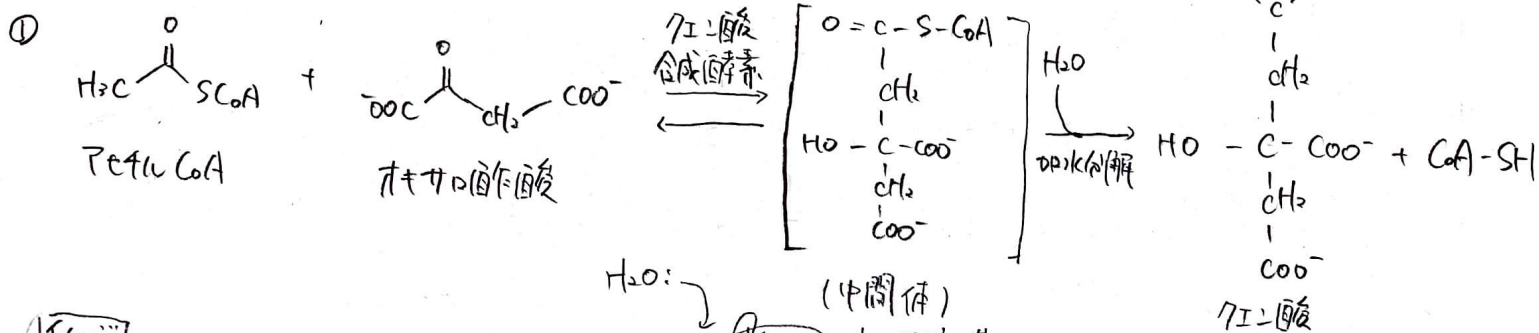 ①
O
H₃C SCoA
アセチルCoA
+
O
⁻OOC CH₂ COO⁻
オキサロ酢酸
クエン酸
合成酵素
O = C - S - CoA
CH₂
HO - C - COO⁻
CH₂
COO⁻
(中間体)
H₂O
加水分解
C
CH₂
HO - C - COO⁻ + CoA-SH
CH₂
COO⁻
クエン酸
H₂O: